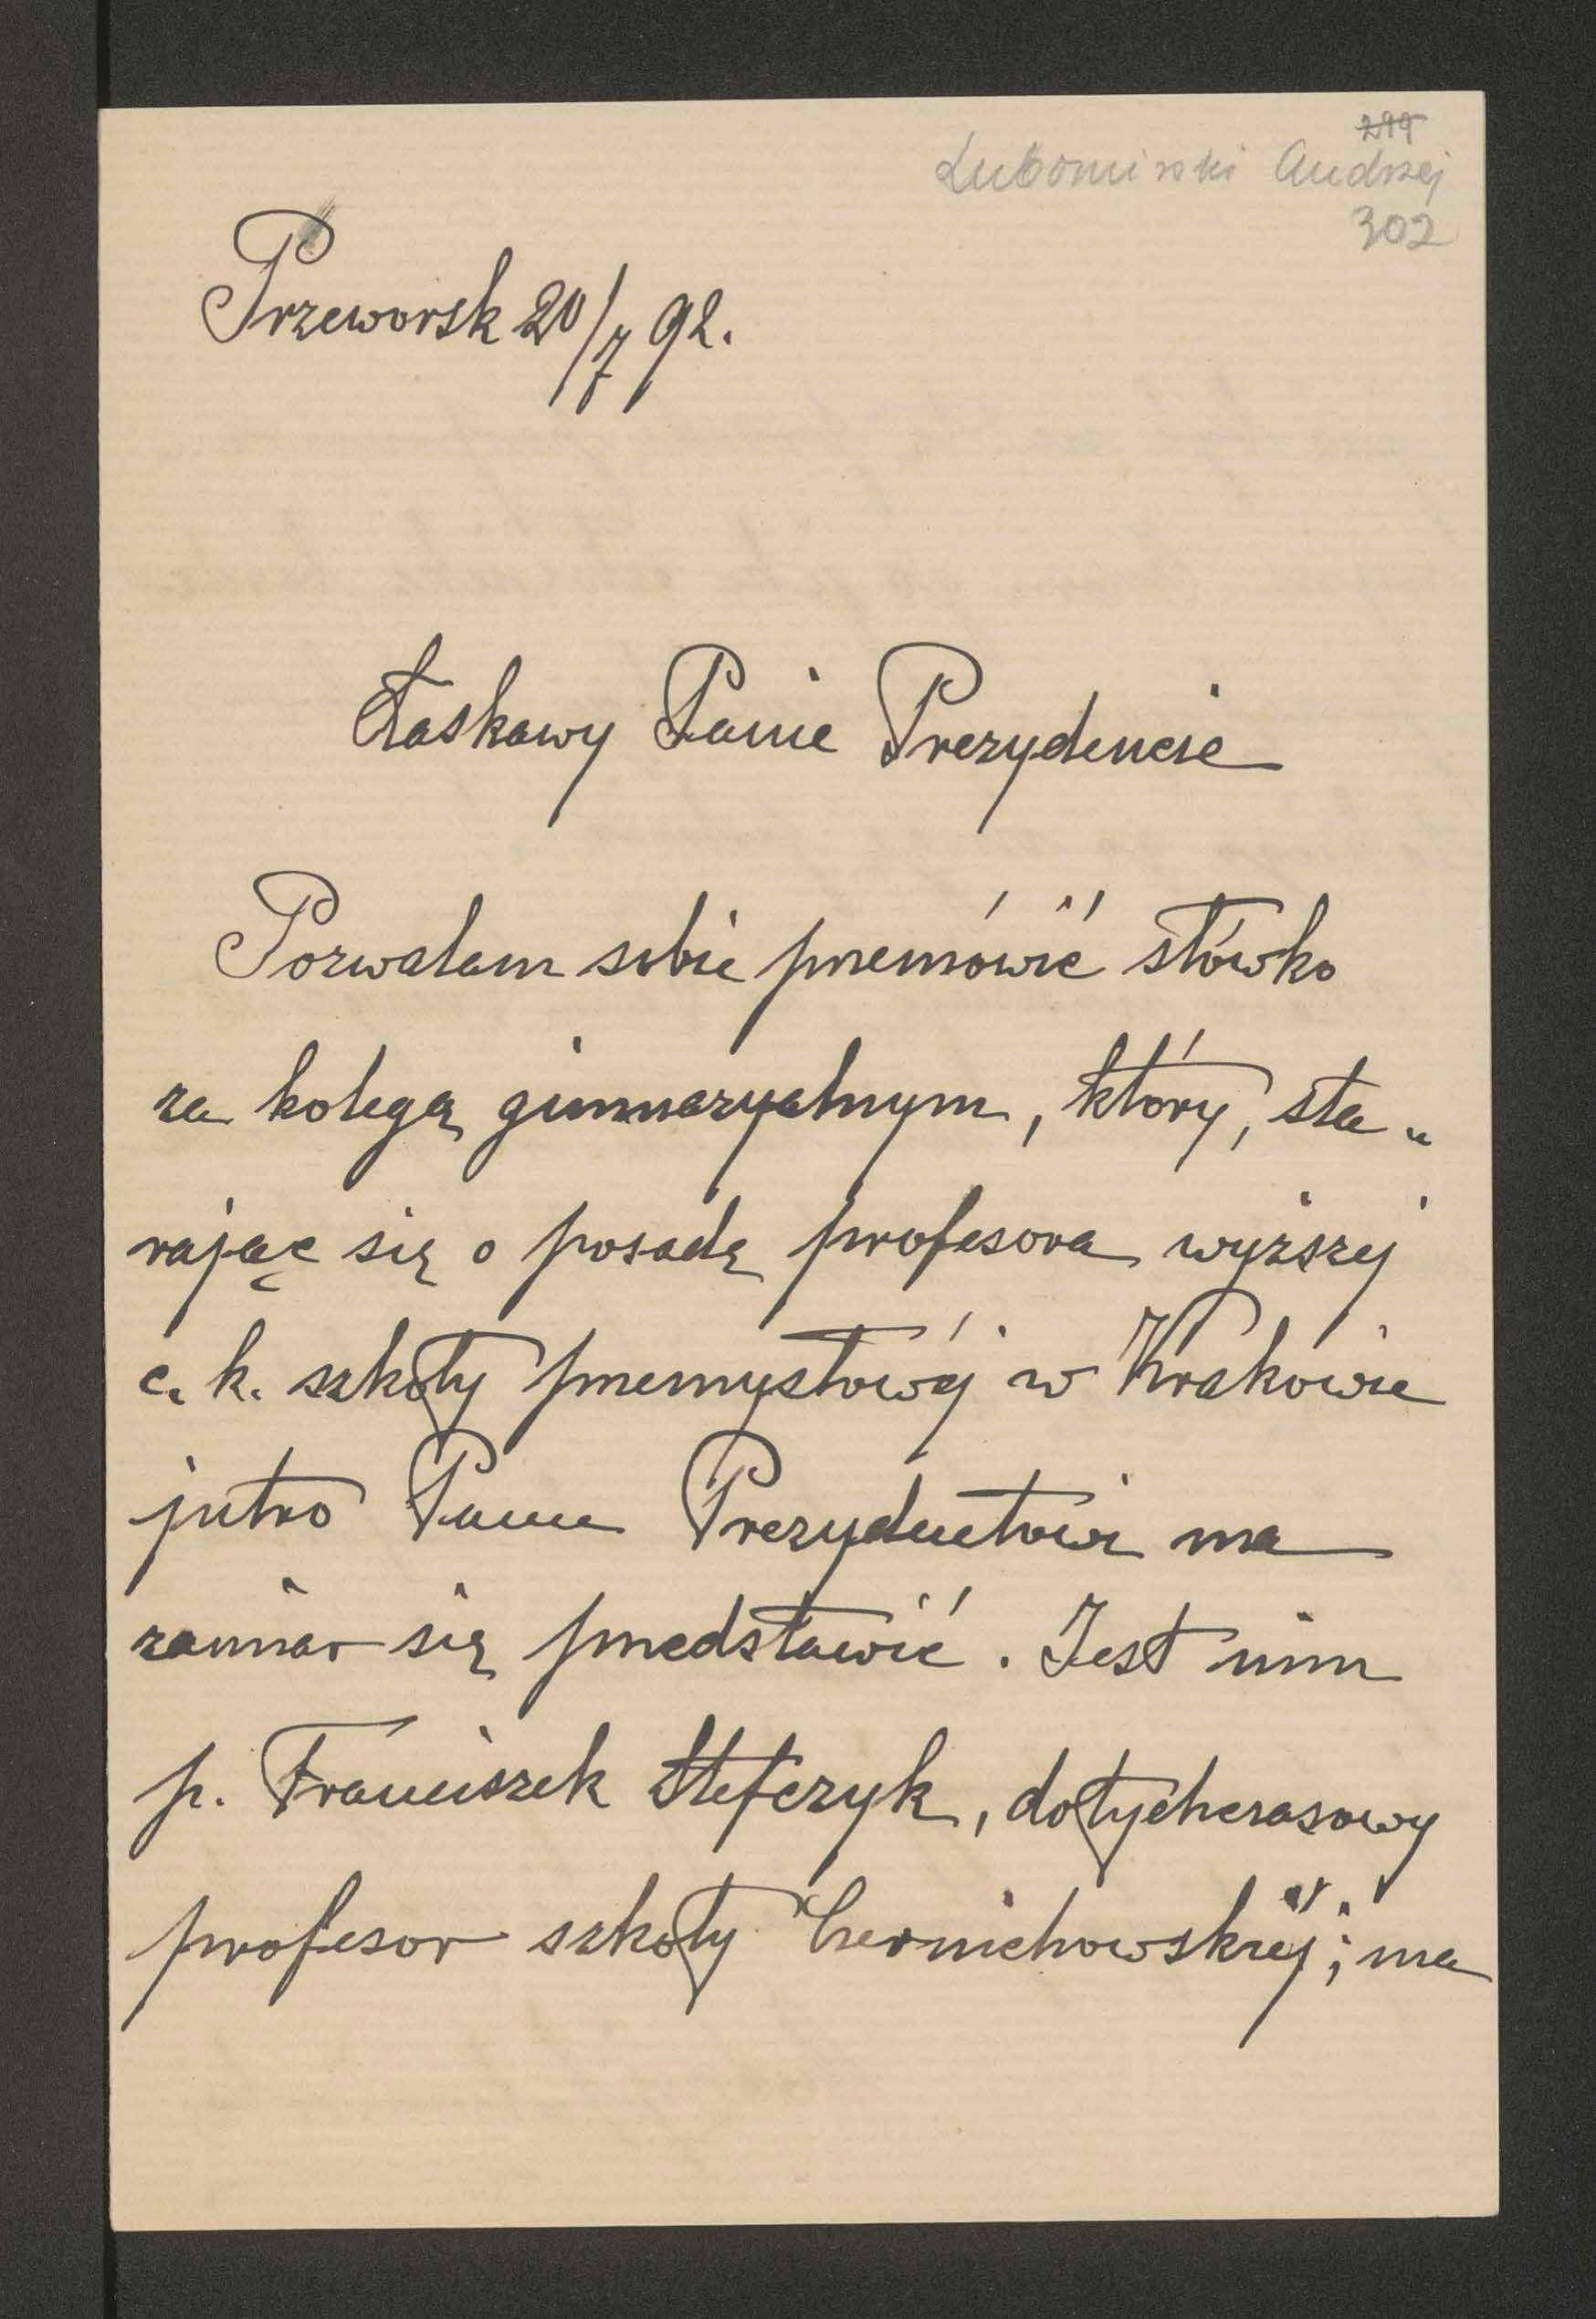 299
Lubomirski Andrzej
302
Przeworsk 20/7 92.
Łaskawy Panie Prezydencie
Pozwalam sobie przemówić słówko
za kolegą gimnazyalnym, który, sta„
rając się o posadę profesora wyższej
c. k. szkoły przemysłowéj w Krakowie
jutro Panu Prezydentowi ma
zamiar się przedstawić. Jest nim
p. Franciszek Stefczyk, dotychczasowy
profesor szkoły Czernichowskiéj; ma